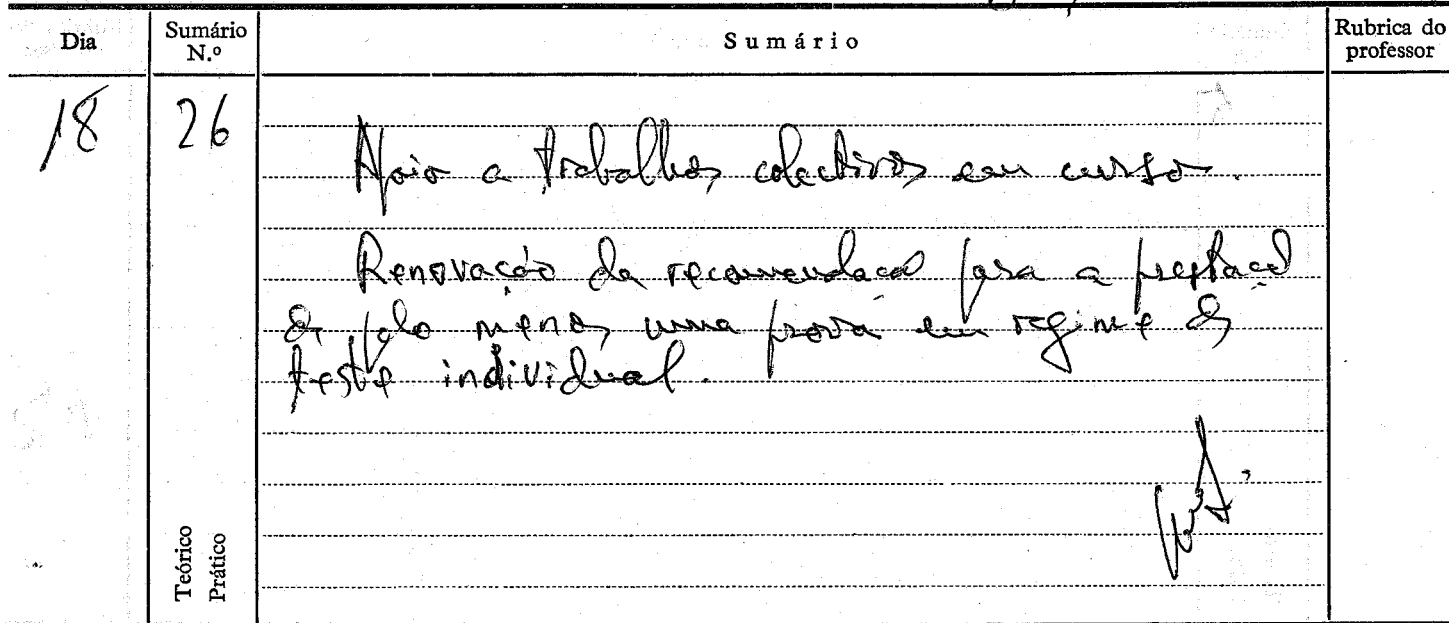 Dia
Sumário
N.º
Sumário
Rubrica do
professor
18
26
Apoio a trabalhos colectivos em curso.
Renovação da recomendação para a prestação
de pelo menos uma prova em regime de
teste individual.
Teórico
Prático